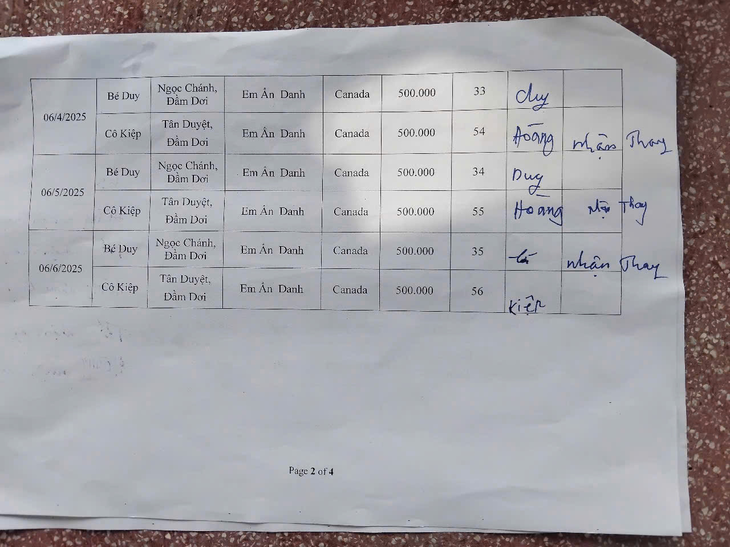 06/4/2025 Bé Duy Ngọc Chánh, Đầm Dơi Em Ẩn Danh Canada 500.000 33 duy
Cô Kiệp Tân Duyệt, Đầm Dơi Em Ẩn Danh Canada 500.000 54 Hoàng nhận Thay
06/5/2025 Bé Duy Ngọc Chánh, Đầm Dơi Em Ẩn Danh Canada 500.000 34 Duy
Cô Kiệp Tân Duyệt, Đầm Dơi Em Ẩn Danh Canada 500.000 55 Hoàng Thay
06/6/2025 Bé Duy Ngọc Chánh, Đầm Dơi Em Ẩn Danh Canada 500.000 35 nhận Thay
Cô Kiệp Tân Duyệt, Đầm Dơi Em Ẩn Danh Canada 500.000 56 Kiệp
Page 2 of 4